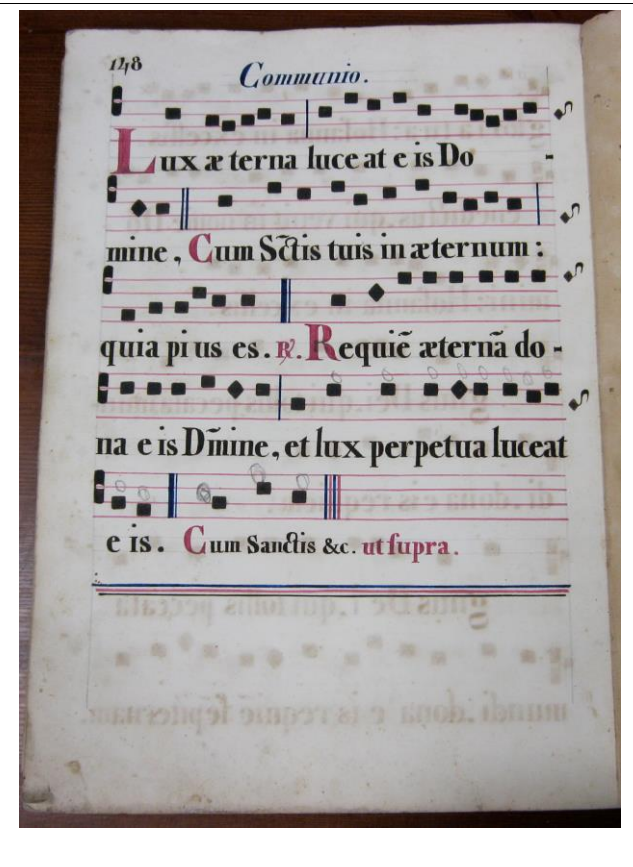 148
Communio.
Lux æ terna luce at e is Do -
mine, Cum Sc̃tis tuis in æternum:
quia pi us es. ℟. Requiẽ æternã do -
na e is Dm̃ine, et lux perpetua luceat
e is. Cum Sanctis &c. ut ſupra.